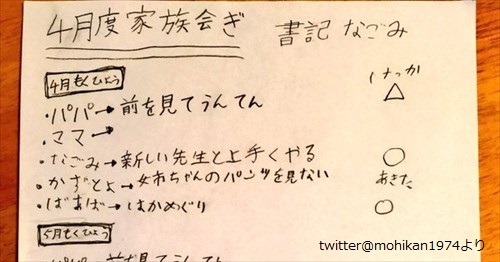 4月度家族会ぎ 書記 なごみ
4月もくひょう けっか
・パパ→前を見てうんてん △
・ママ→
・なごみ→新しい先生と上手くやる ○
・かずとよ→姉ちゃんのパンツを見ない あきた
・ばあば→はかめぐり ○
5月もくひょう
・パパ→前を見てうんてん
twitter@mohikan1974より